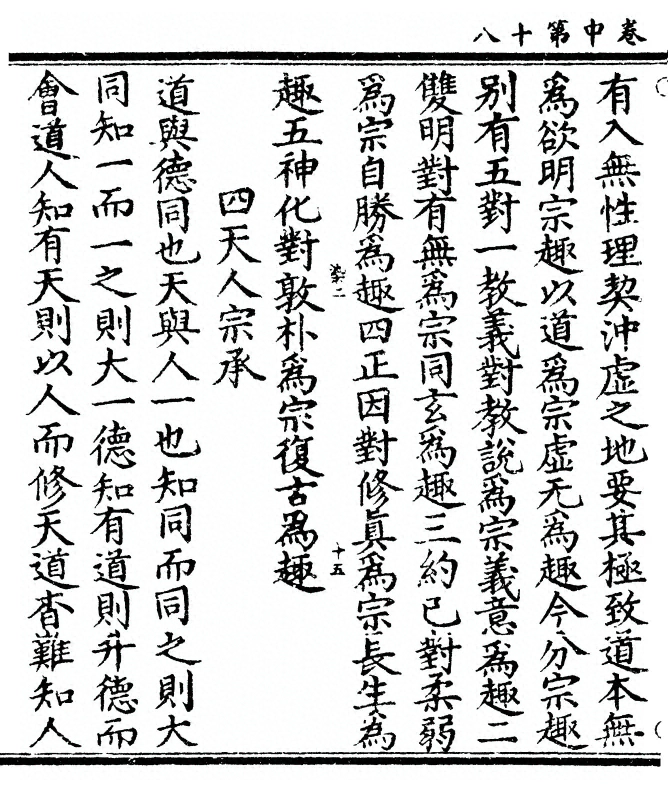 卷中第十八
有入無性理契沖虛之地要其極致道本無
爲欲明宗趣以道爲宗虛无爲趣今分宗趣
别有五對一教義對教說爲宗義意爲趣二
雙明對有無爲宗同玄爲趣三約已對柔弱
爲宗自勝爲趣四正因對修眞爲宗長生爲
趣五神化對敦朴爲宗復古爲趣
染二
十五
四天人宗承
道與德同也天與人一也知同而同之則大
同知一而一之則大一德知有道則升德而
會道人知有天則以人而修天道杳難知人